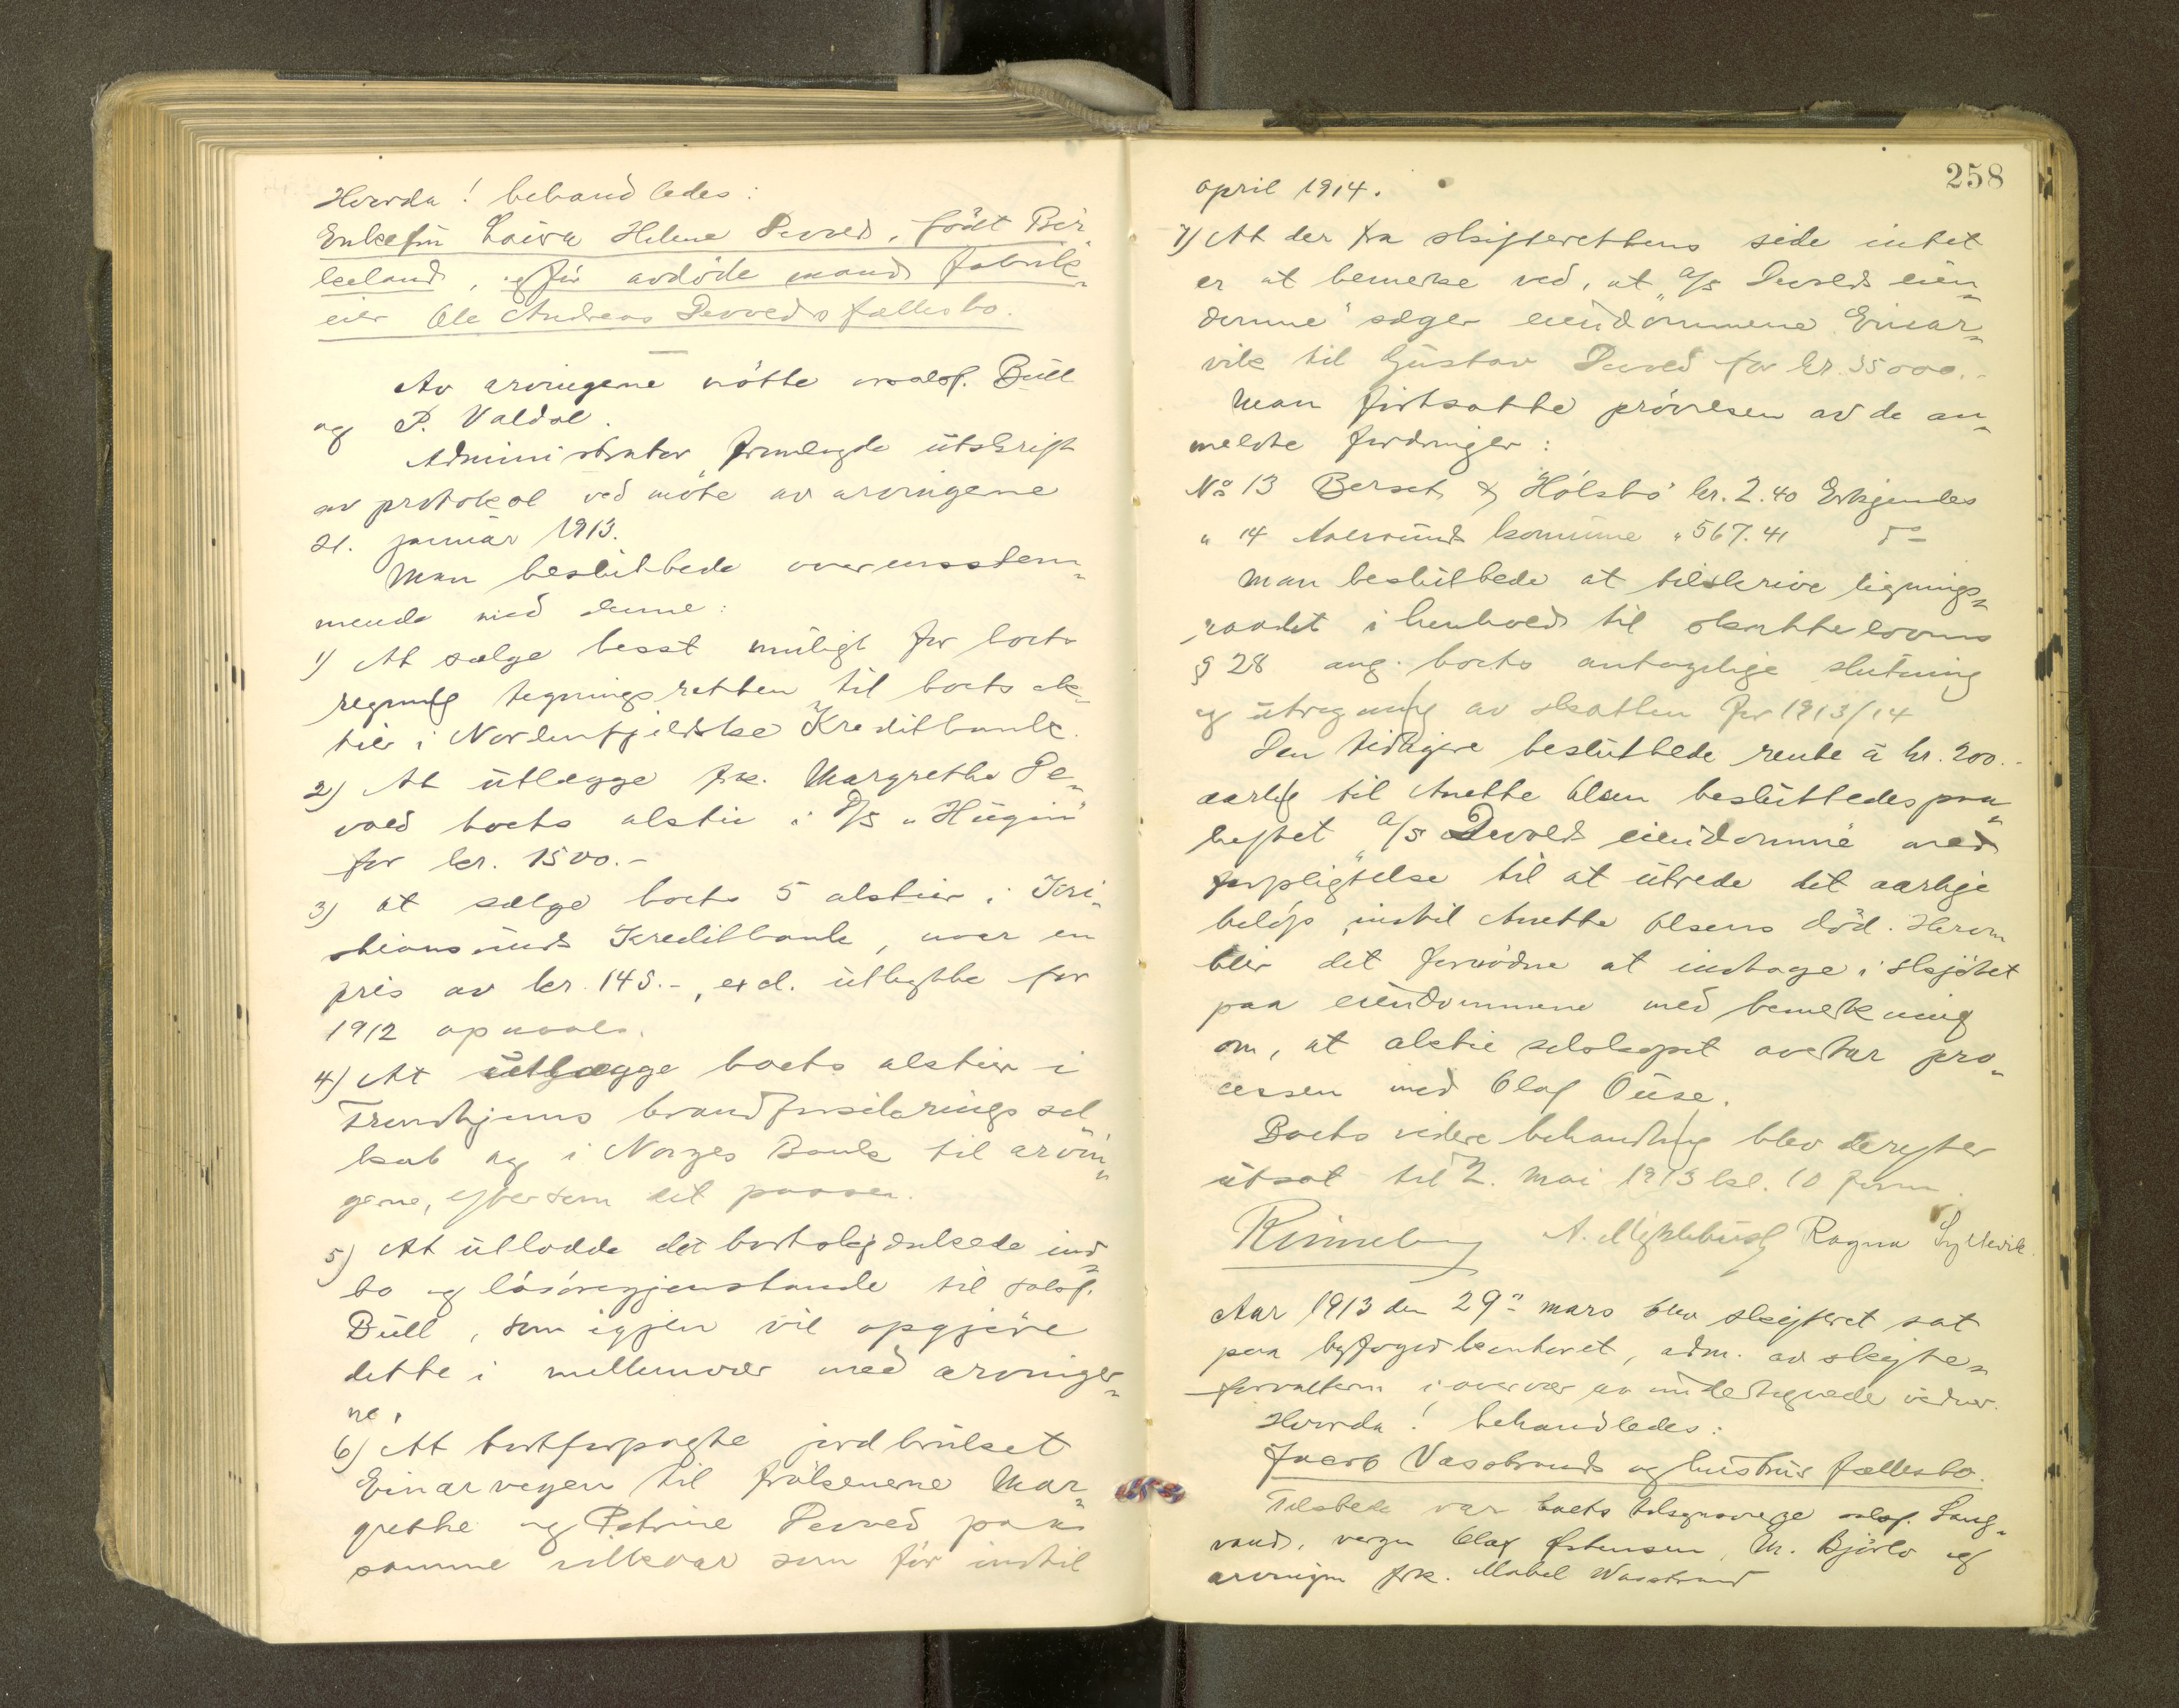 Hvorda! behandledes:
Enkefru Lovise Helene Devold, født Bir-
keland, og før avdøde mand fabrik-
eier Ole Andreas Devolds fællesbo.
Av arvingerne møtte o.r.salsf. Bull
og P. Valdal.
Administrator fremlagde utskrift
av protokol ved møte av arvingerne
21. januar 1913.
Man besluttede overensstem-
mende med denne:
1) At sælge besst muligt for boets
regning tegningsretten til boets ak-
tier i Nordenfjeldske Kreditbank.
2) At utlægge frk. Margrethe De-
vold boets aktie i A/S "Hugin"
for kr. 1500.-
3) at sælge boets 5 aktier i Kri-
stianssunds Kreditbank, naar en
pris av kr. 145.-, excl. utbytte for
1912 opnaaes.
4) At utlægge boets aktier i
Trondhjems brandforsikringssel-
skab og i Norges Bank til arvin-
gerne, eftersom det passer.
5) At utlodde det bortskjænkede ind-
bo og løsøregjenstande til salsf.
Bull, som igjen vil opgjøre
dette i mellemvær med arvinger-
ne.
6) At bortforpagte jordbruket
Einarvegen til frøkenerne Mar-
grethe og Petrine Devold paa
samme vilkaar som før indtil
258
april 1914.
7) At der fra skifterettens side intet
er at bemerke ved, at "A/S Devolds eien-
domme" sælger eiendommene Einar-
vik til Gustav Devold for kr. 35000.-
Man fortsatte prøvelsen av de an-
meldte fordringer:
No 13 Berset & Holsbø kr. 2.40 Erkjendes
" 14 Aalesund kommune " 567.41 do
Man besluttede at tilskrive lignings-
raadet i henhold til skattelovens
§ 28 ang. boets antagelige slutning
og utregning av skatten for 1913/14
Den tidligere besluttede rente à kr. 200.-
aarlig til Anette Olsen besluttedes paa-
heftet "A/S Devolds eiendomme" med
forpligtelse til at utrede det aarlige
beløp indtil Anette Olsens død. Herom
blir det fornødne at indtage i skjøtet
paa eiendommene med bemerkning
om, at aktieselskapet overtar pro-
cessen med Olaf Ouse.
Boets videre behandling blev derefter
utsat til 2. mai 1913 kl. 10 form.
A. Myklebust Ragna Syltevik
Aar 1913 den 29de mars blev skifteret sat
paa byfogedkontoret, adm. av skifte-
forvalteren i overvær av undertegnede vidner.
Hvorda! behandledes:
Jacob Vasstrands og hustrus fællesbo.
Tilstede var boets tilsynsverge salsf. Lang-
vand, vergen Olaf Østensen, M. Bjørlo og
arvingen frk. Mabel Wasstrand